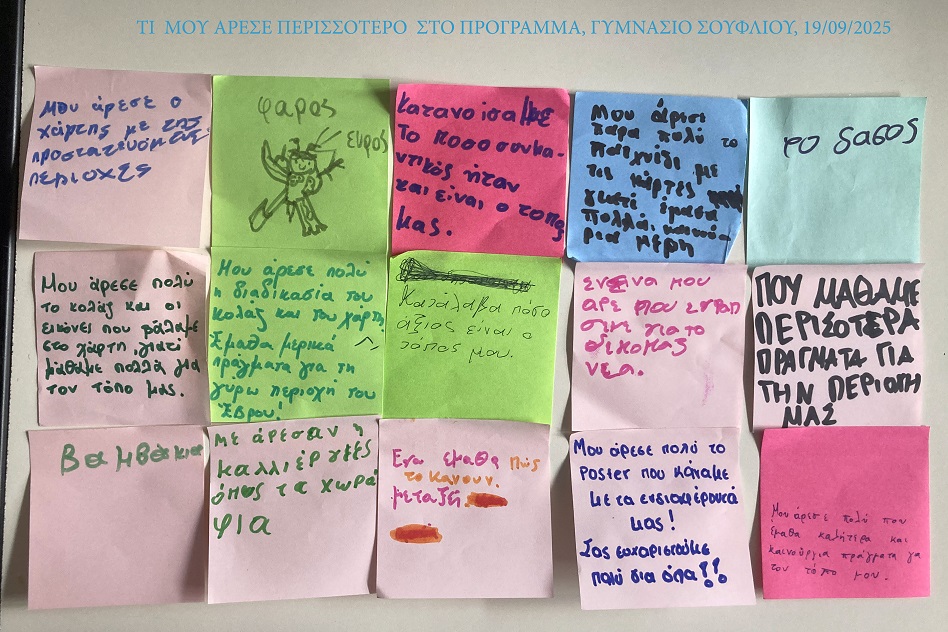 ΤΙ ΜΟΥ ΑΡΕΣΕ ΠΕΡΙΣΣΟΤΕΡΟ ΣΤΟ ΠΡΟΓΡΑΜΜΑ, ΓΥΜΝΑΣΙΟ ΣΟΥΦΛΙΟΥ, 19/09/2025
Μου άρεσε ο
χάρτης με της
προστατευόμενες
περιοχες
φαρος
ευρος
Κατανοισαμε
το ποσο συμα-
ντικός ήταν
και είναι ο τοπος
μας.
Μου άρεσι
παρα πολύ το
παιχνίδι με
τις κάρτες
γιατί έμαθα
πολλά καινού-
ρια μέρη
το δασος
Μου άρεσε πολύ
το κολάζ και οι
εικόνες που βάλαμε
στο χάρτη, γιατί
μάθαμε πολλά για
τον τόπο μας.
Μου άρεσε πολύ
η διαδικασία του
κολάζ και του χάρτη
Έμαθα μερικά
πράγματα για τη
γύρω περιοχή του
Έβρου!
Κατάλαβα πόσο
άξιος είναι ο
τόπος μου.
μου
για το
δικομας
νεα.
ΠΟΥ ΜΑΘΑΜΕ
ΠΕΡΙΣΟΤΕΡΑ
ΠΡΑΓΜΑΤΑ ΓΙΑ
ΤΗΝ ΠΕΡΙΟΧΗ
ΜΑΣ
Βαμβάκια
με άρεσαν η
καλλιέργιές
όπως τα χωρά
φια
Ενα εμαθα πώς
το κανουν.
μεταξι
Μου άρεσε πολύ το
Poster που κάναμε
με τα ενδιαφέροντά
μας!
Σας ευχαριστούμε
πολύ δια όλα!!
Μου άρεσε πολύ που
έμαθα καλήτερα και
καινούργια πράγματα για
τον τόπο μου.